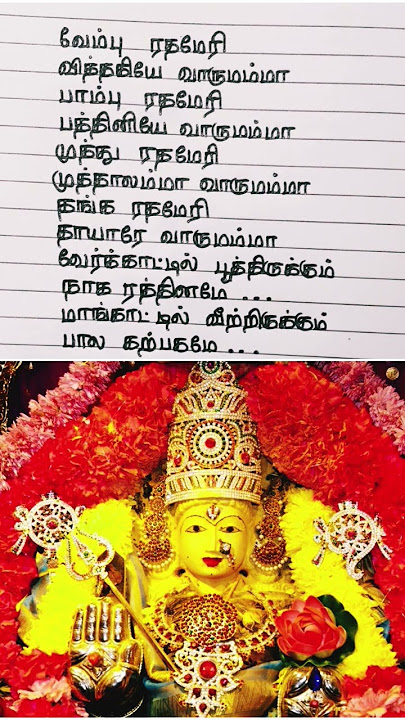 வேம்பு ரதமேறி
வித்தகியே வாருமம்மா
பாம்பு ரதமேறி
பத்தினியே வாருமம்மா
முத்து ரதமேறி
முத்தாலம்மா வாருமம்மா
தங்க ரதமேறி
தாயாரே வாருமம்மா
வேர்க்காட்டில் பூத்திருக்கும்
நாக ரத்தினமே ...
மாங்காட்டில் வீற்றிருக்கும்
பால கற்பகமே ...